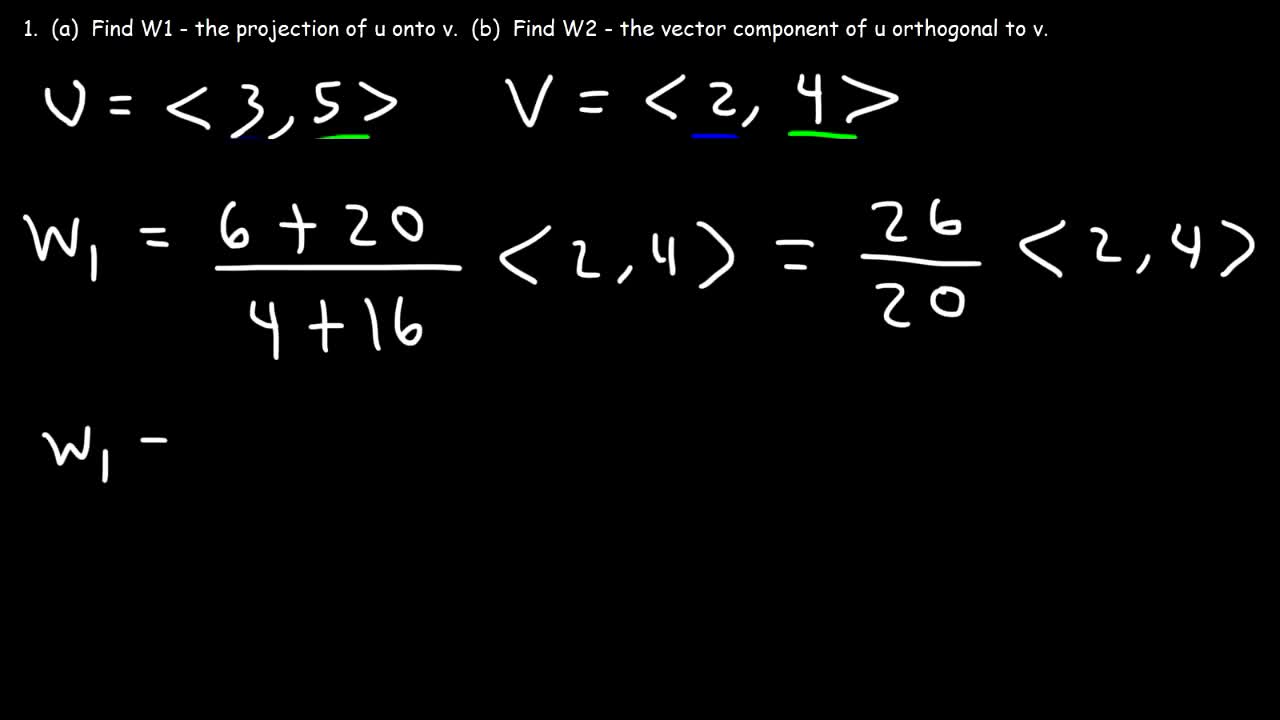 1. (a) Find W1 - the projection of u onto v. (b) Find W2 - the vector component of u orthogonal to v.
U = < 3, 5 > V = < 2, 4 >
W₁ = (6 + 20)/(4 + 16) < 2, 4 > = 26/20 < 2, 4 >
W₁ -